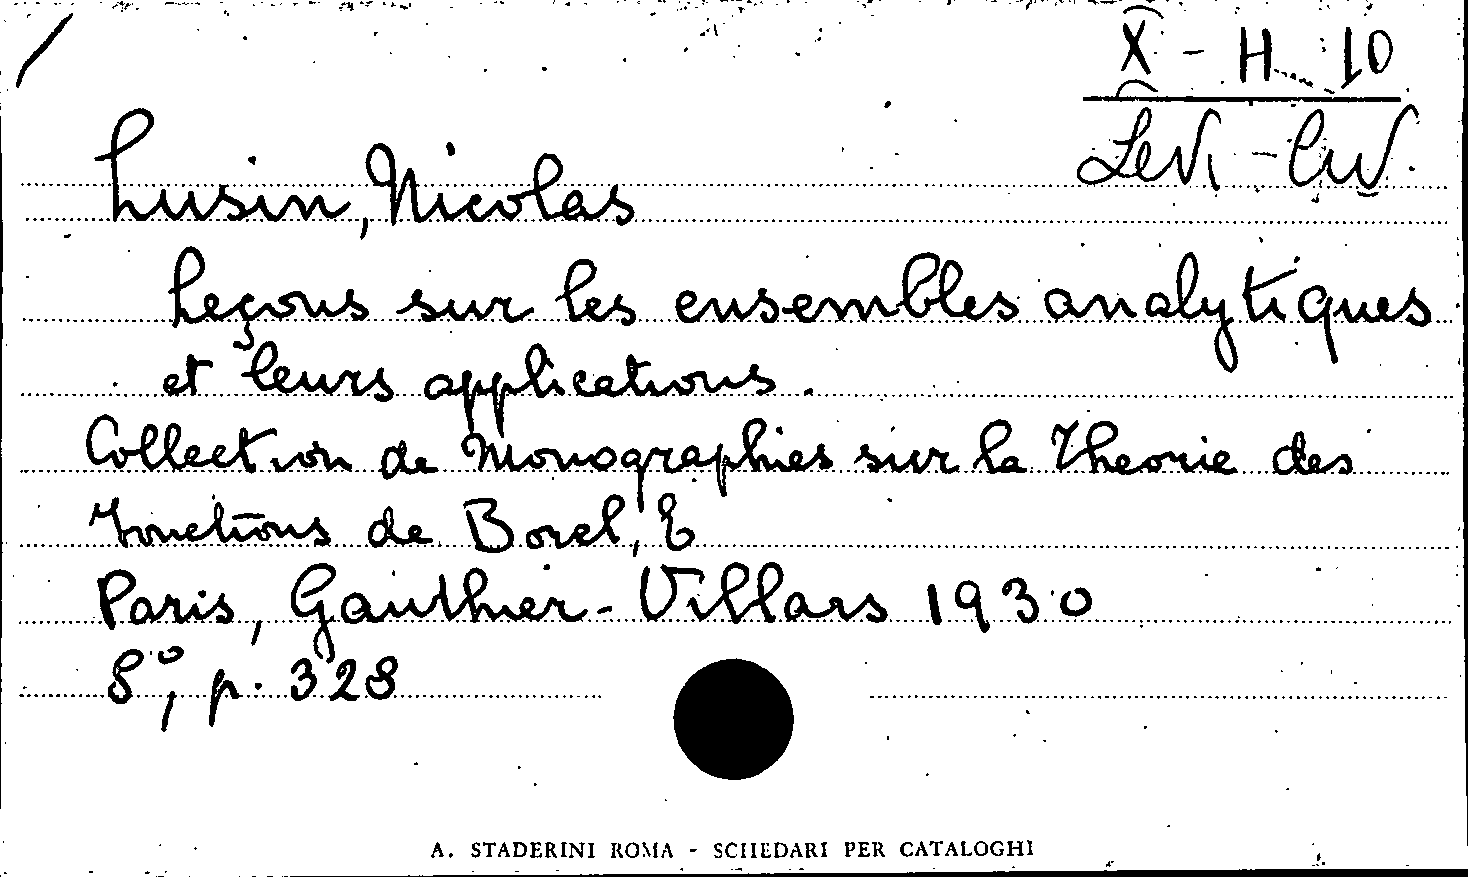 X - H 10
Levi - Civ.
Lusin, Nicolas
Leçons sur les ensembles analytiques
et leurs applications.
Collection de Monographies sur la Theorie des
Fonctions de Borel, E
Paris, Gauthier-Villars 1930
8°, p. 328
A. STADERINI ROMA - SCHEDARI PER CATALOGHI